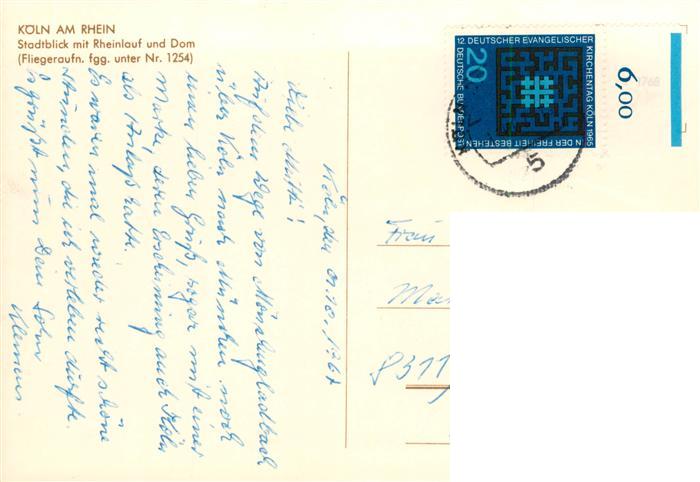 KÖLN AM RHEIN
Stadtblick mit Rheinlauf und Dom
(Fliegeraufn. fgg. unter Nr. 1254)
12. DEUTSCHER EVANGELISCHER
KIRCHENTAG KÖLN 1965
IN DER FREIHEIT BESTEHEN
DEUTSCHE BUNDESPOST
20
6,00
Köln, den
Liebe Mutti!
Auf dem Wege von Mönchengladbach
über Köln nach München noch
einen lieben Gruß, sogar mit einer
Marke, deren Erscheinung auch Köln
als Anlaß hatte.
Es waren mal wieder recht schöne
Stunden, die ich verleben durfte.
Es grüßt nun Dein Sohn
Klemens.
Frau
8311